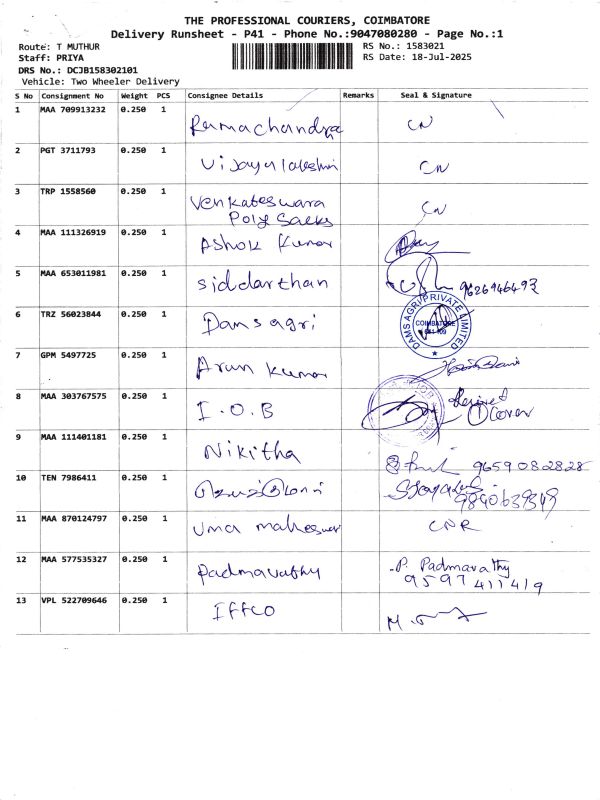 THE PROFESSIONAL COURIERS, COIMBATORE
Delivery Runsheet - P41 - Phone No.:9047080280 - Page No.:1
Route: T MUTHUR
RS No.: 1583021
Staff: PRIYA
RS Date: 18-Jul-2025
DRS No.: DCJB158302101
Vehicle: Two Wheeler Delivery
S No Consignment No Weight PCS Consignee Details Remarks Seal & Signature
1 MAA 709913232 0.250 1 Ramachandra CN
2 PGT 3711793 0.250 1 Vijayalakshmi CN
3 TRP 1558560 0.250 1 Venkateswara CN
Poly Sacks
4 MAA 111326919 0.250 1 Ashok Kumar
5 MAA 653011981 0.250 1 Siddarthan 9626946493
6 TRZ 56023844 0.250 1 Damsagri DAMS AGRI PRIVATE LIMITED COIMBATORE
7 GPM 5497725 0.250 1 Arun Kumar
8 MAA 303767575 0.250 1 I.O.B
① Cover
9 MAA 111401181 0.250 1 Nikitha 9659082828
10 TEN 7986411 0.250 1
9840639349
11 MAA 870124797 0.250 1 Uma maheswar CPR
12 MAA 577535327 0.250 1 Padmavathy P. Padmavathy
9597411419
13 VPL 522709646 0.250 1 IFFCO